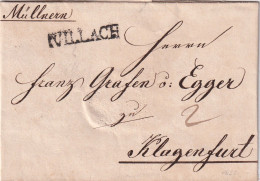 Müllnern
VILLACH
Herrn
Franz Grafen v: Egger
zu 2
Klagenfurt